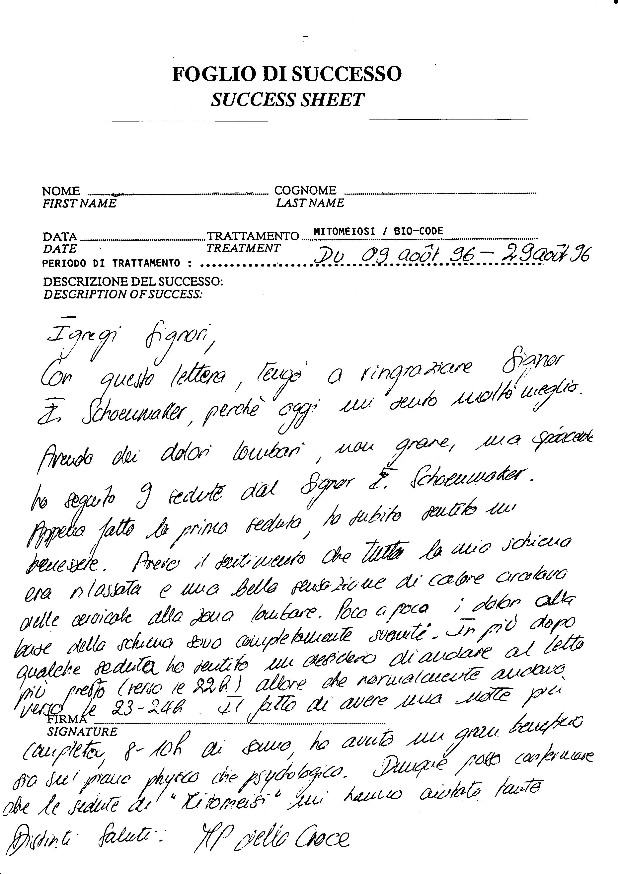 FOGLIO DI SUCCESSO
SUCCESS SHEET
NOME COGNOME
FIRST NAME LAST NAME
DATA TRATTAMENTO MITOMEIOSI / BIO-CODE
DATE TREATMENT
PERIODO DI TRATTAMENTO : DU 09 août 96 – 29 août 96
DESCRIZIONE DEL SUCCESSO:
DESCRIPTION OF SUCCESS:
Egregi Signori,
Con questo lettera, tengo a ringraziare Signor
E. Schoenmaker, perchè oggi mi sento molto meglio.
Avendo dei dolori lombari, non grave, ma
ho seguito 9 sedute dal Signor E. Schoenmaker.
Appena fatto la prima seduta, ho subito sentito un
benessere. Avevo il sentimento che tutta la mia schiena
era rilassata e una bella sensazione di calore circolava
delle cervicale alla zona lombare. Poco a poco i dolori alla
base della schiena sono completamente svaniti. In più dopo
qualche seduta ho sentito un desiderio di andare al letto
più presto (verso le 22h) allore che normalmente andavo
verso le 23-24h. Il fatto di avere una notte più
FIRMA
SIGNATURE
completa, 8-10h di sonno, ho avuto un gran beneficio
sia sul piano physico che psychologico. Dunque posso confermare
che le sedute di "Mitomeiosi" mi hanno aiutato tanto
Distinti Saluti: MP Della Croce